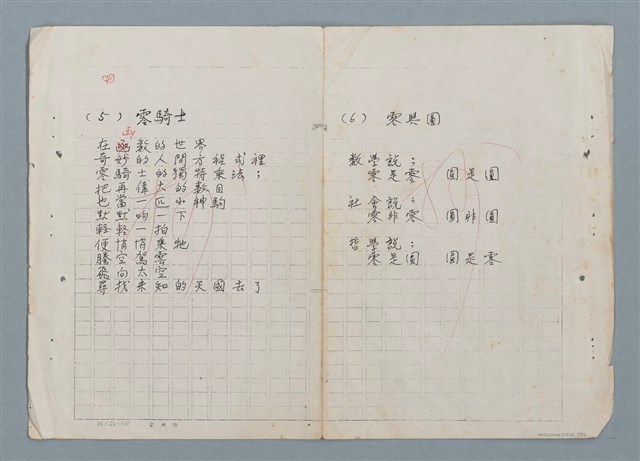 (5) 零騎士
在函數的世界
奇妙的人間方程式裡
零騎士的獨特乘法；
把再偉大的數目
也當一匹小神駒
默默一吻下
輕輕一拍
便悄悄乘牠
騰空駕
飛向太空
尋找未知的天國去了
(6) 零與圓
數學說：
零是零 圓是圓
社會說：
零非零 圓非圓
哲學說：
零是圓 圓是零